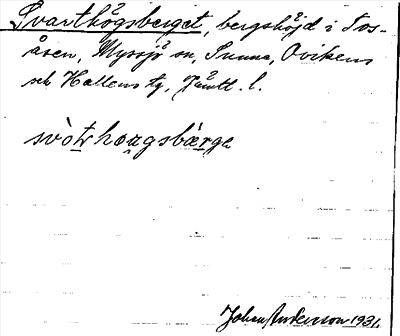 Svarthögsberget, bergshöjd i Tos-
åsen, Myssjö sn, Sunne, Ovikens
och Hallens tg, Jämtl. l.
svòtrhaugsbàrge
Johan Anderson 1931.